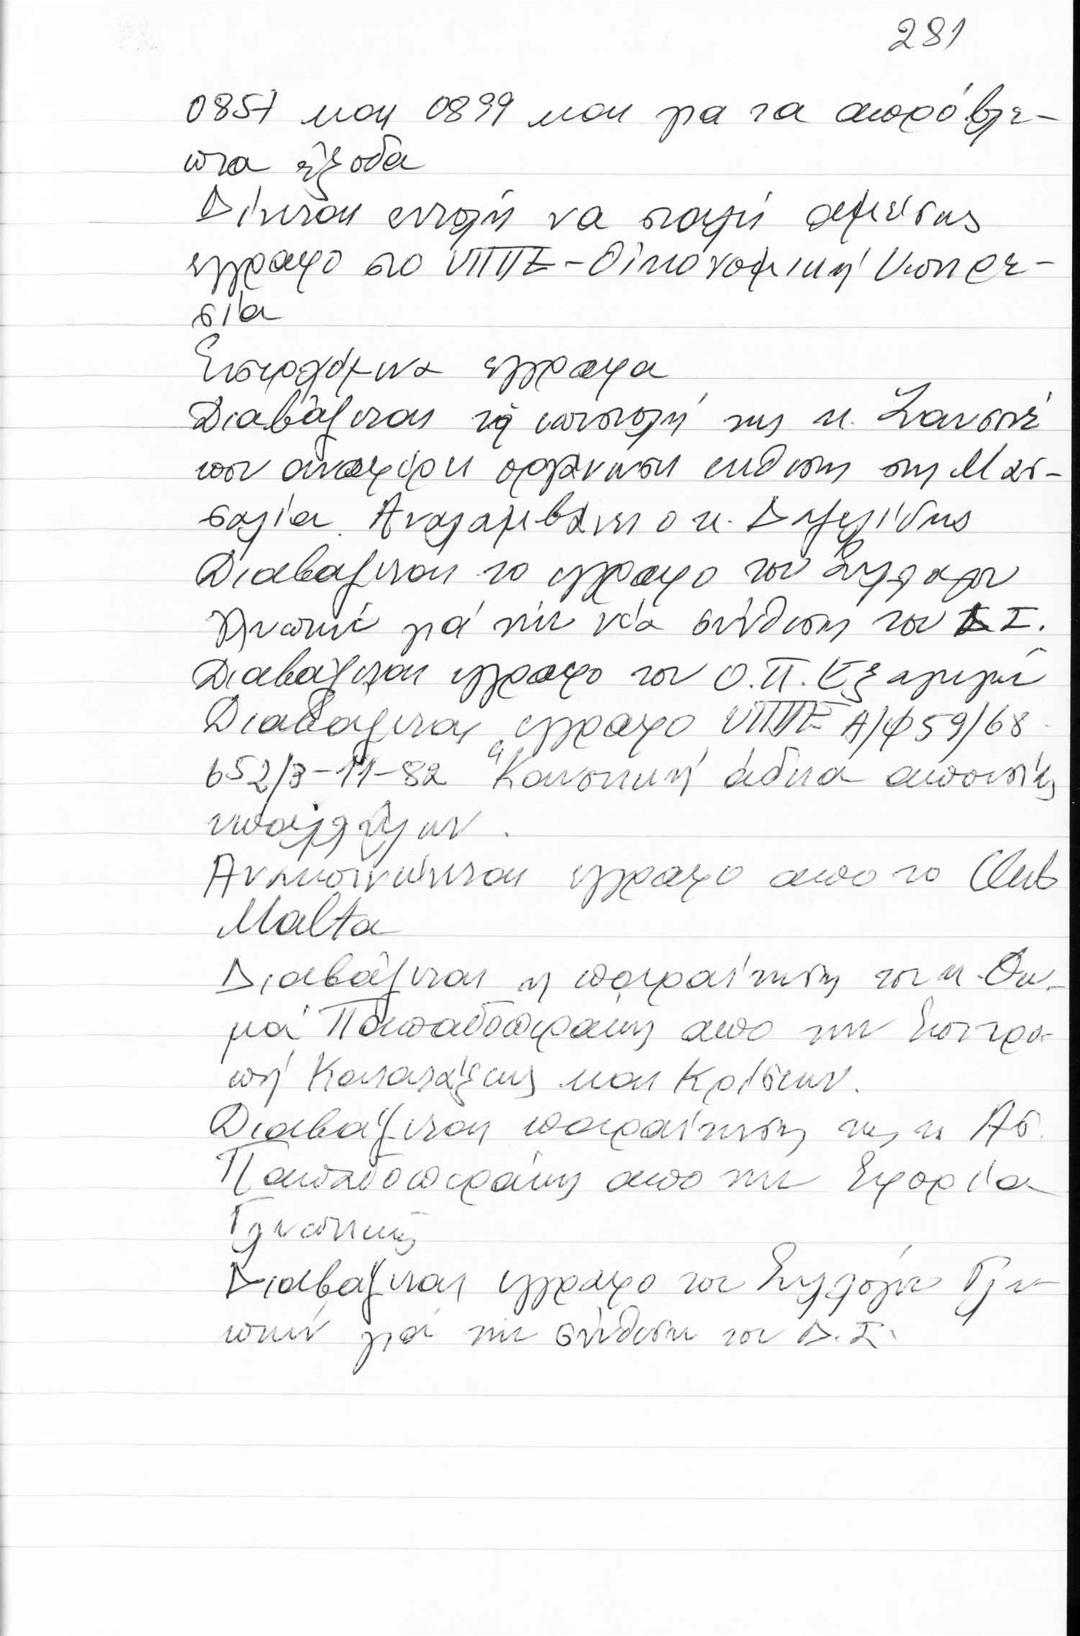 281
0857 και 0899 και για τα απρόβλε-
πτα έξοδα
Δίνεται εντολή να σταλή αμέσως
έγγραφο στο ΥΠΠΕ - Οικονομική Υπηρε-
σία
Εισερχόμενα έγγραφα
Διαβάζεται η επιστολή της κ.
που αναφέρει οργάνωση εκθεσης στη Μασ-
σαλία. Αναλαμβάνει ο κ.
Διαβάζεται το έγγραφο του Συλλόγου
Γλυπτών γιά την νέα σύνθεση του Δ.Σ.
Διαβάζεται έγγραφο του Ο.Π. Εξαγωγών
Διαβάζεται έγγραφο ΥΠΠΕ Α/φ59/68
652/3-11-82 "Κανονική άδεια απουσίας
υπαλλήλων.
Ανακοινώνεται έγγραφο απο το Club
Malta
Διαβάζεται η παραίτηση του κ. Θω-
μά Παπαδοπεράκη απο την Επιτρο-
πή Κατατάξεως και Κρίσεων.
Διαβάζεται παραίτηση της κ Ασ.
Παπαδοπεράκη απο την Εφορεία
Γλυπτικής
Διαβάζεται έγγραφο του Συλλόγου Γλυ-
πτών γιά την σύνθεση του Δ.Σ.